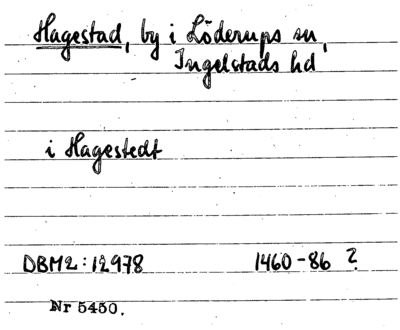 Hagestad, by i Löderups sn,
Ingelstads hd
i Hagestedt
DBM2:12978 1460-86 ?
Nr 5450.